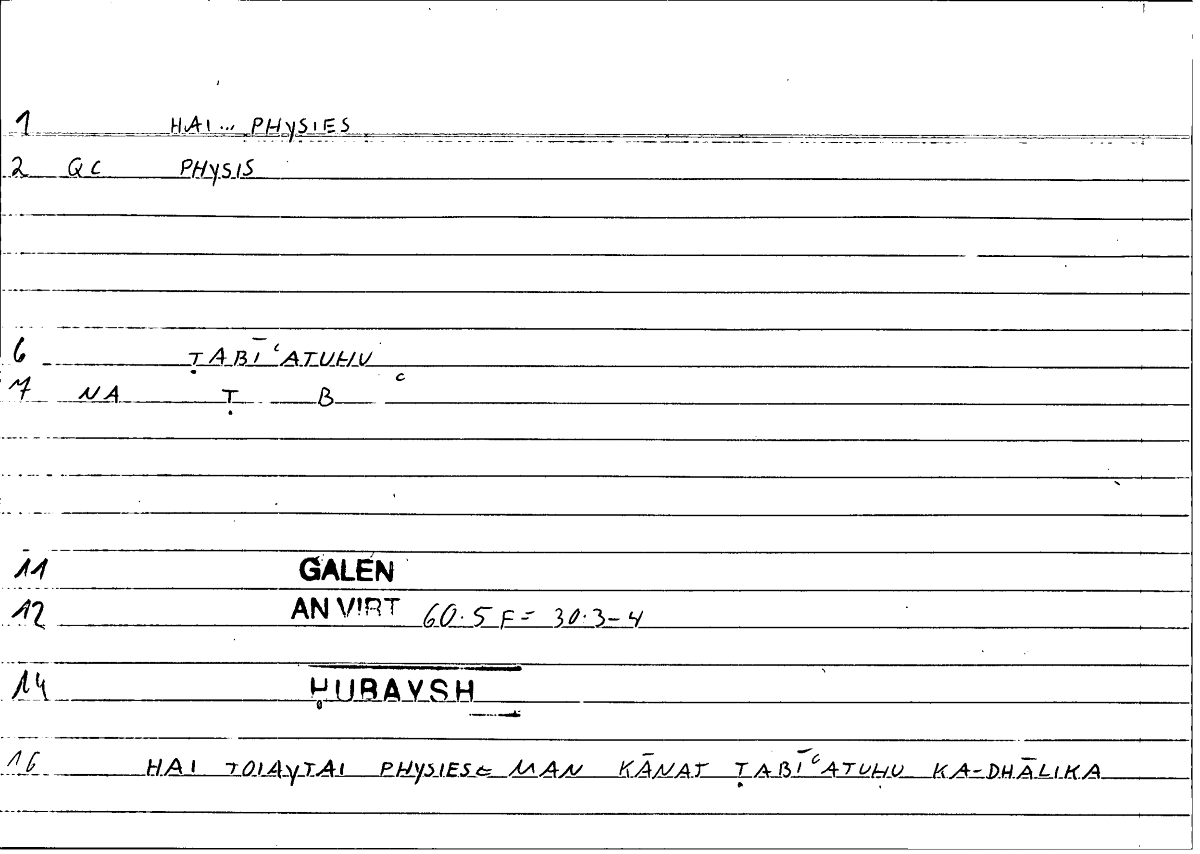 1 HAI... PHYSIES
2 QC PHYSIS
6 ṬABĪʿATUHU
7 NA Ṭ B ʿ
11 GALEN
12 AN VIRT 60.5 F = 30.3-4
14 ḤUBAYSH
16 HAI TOIAYTAI PHYSIES = MAN KĀNAT ṬABĪʿATUHU KA-DHĀLIKA